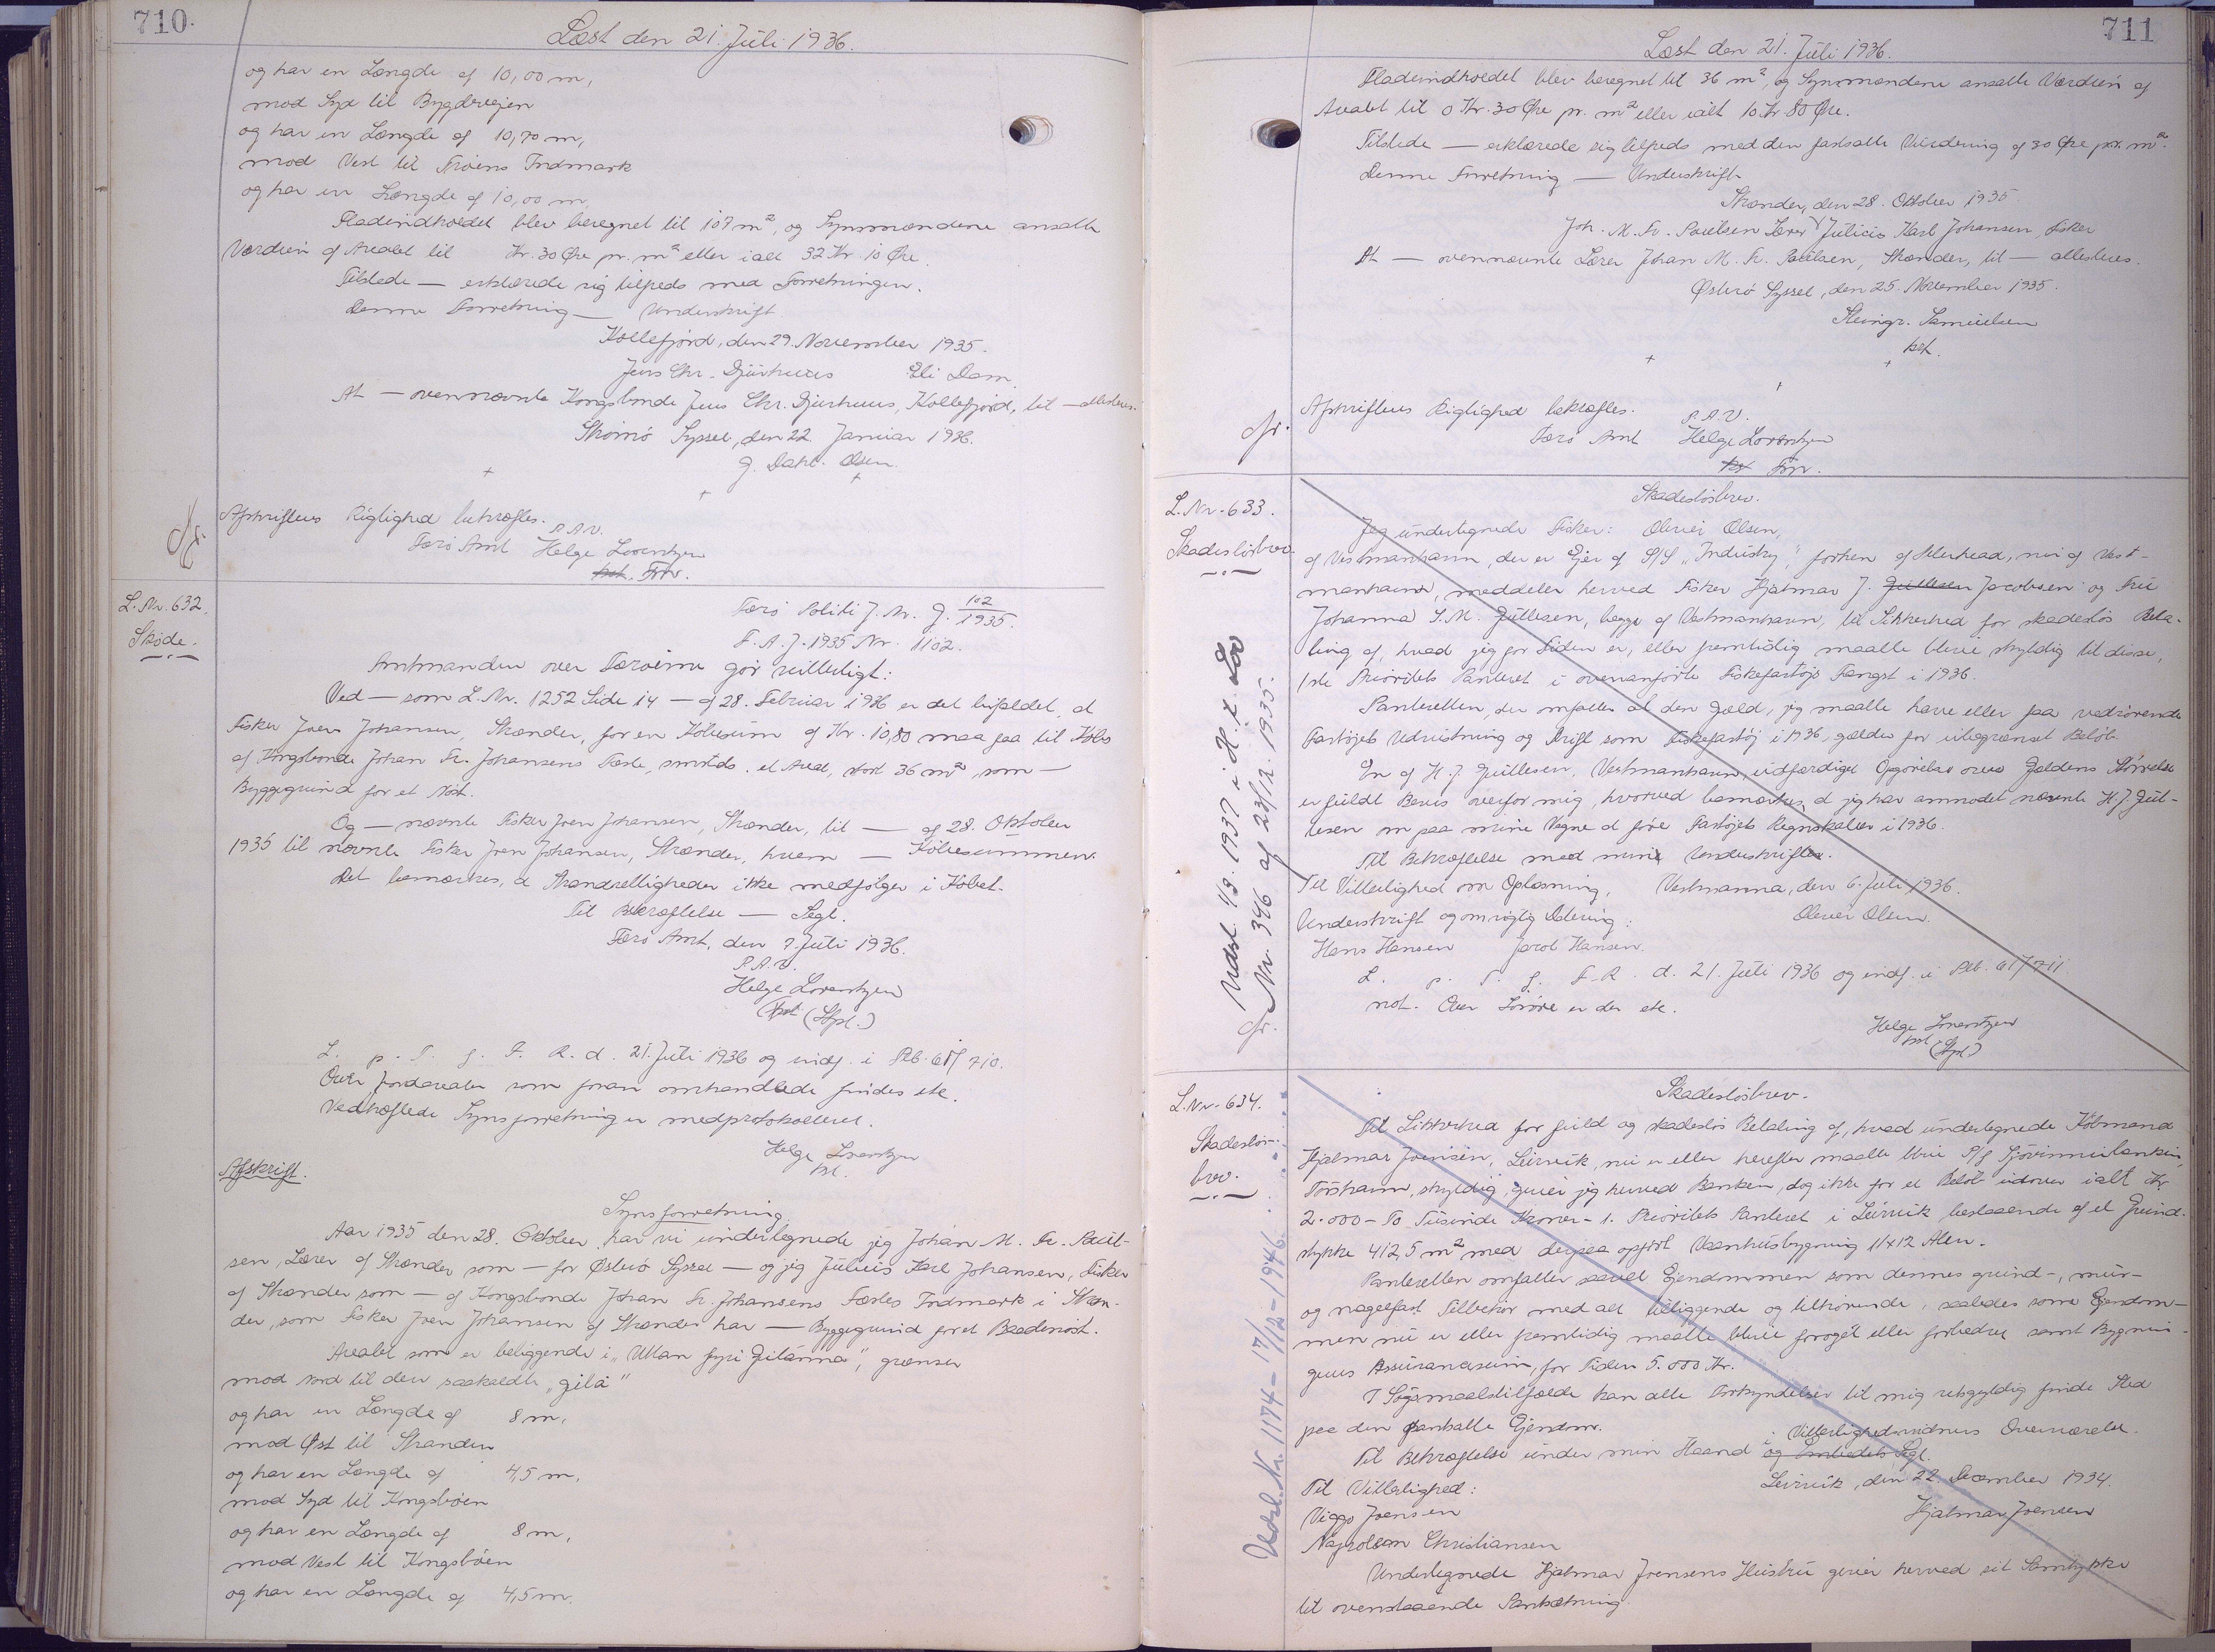 710.
Læst den 21. Juli 1936.
og har en Længde af 10,00 m,
mod Syd til Bygdevejen
og har en Længde af 10,70 m,
mod Vest til Trøens Indmark
og har en Længde af 10,00 m,
Fladeindholdet blev beregnet til 107 m², og Synsmændene ansatte
Værdien af Arealet til Kr. 30 Øre pr. m² eller ialt 32 Kr. 10 Øre.
Tilstede — erklærede sig tilfreds med Forretningen.
Denne Forretning — Underskrift.
Kollefjord, den 29. November 1935.
Jens Chr. Djurhuus Eli Dam
At — ovennævnte Kongsbonde Jens Chr. Djurhuus, Kollefjord, til — allesteds.
Strømø Syssel, den 22. Januar 1936.
J. Dahl-Olsen.
Afskriftens Rigtighed bekræftes.
P. A. V.
Færø Amt Helge Lorentzen
kst. Frv.
L. Nr. 632.
Skøde.
Færø Politi J. Nr. J. 102/1935.
F. A. J. 1935 Nr. 1102.
Amtmanden over Færøerne gør vitterligt:
Ved — som L. Nr. 1252 Side 14 — af 28. Februar 1936 er det bifaldet, at
Fisker Joen Johansen, Skænder, for en Købesum af Kr. 10,80 maa faa til Købs
af Kongsbonde Johan Fr. Johansens Fæste, smstds. et Areal, stort 36 m² som —
Byggegrund for et Nøst.
Og — nævnte Fisker Joen Johansen, Skænder, til — af 28. Oktober
1935 til nævnte Fisker Joen Johansen, Skænder, hvem — Købesummen.
Det bemærkes, at Strandrettigheder ikke medfølger i Købet.
Til Bekræftelse — Segl.
Færø Amt, den 7. Juli 1936.
P. A. V.
Helge Lorentzen
kst (Stpl.)
L. p. T. f. F. R. d. 21. Juli 1936 og indf. i Pb. 61/710.
Over Jordarealer som foran omhandlede findes etc.
Vedhæftede Synsforretning er medprotokolleret.
Helge Lorentzen
kst.
Afskrift.
Synsforretning.
Aar 1935 den 28. Oktober har vi undertegnede jeg Johan M. Fr. Poul-
sen, Lærer af Skænder som — for Østerø Syssel — og jeg Julius Karl Johansen, Fisker
af Skænder som — af Kongsbonde Johan Fr. Johansens Fæstes Indmark i Skæn-
der, som Fisker Joen Johansen af Skænder har — Byggegrund for et Baadenøst.
Arealet som er beliggende i „Uttan fyri Gilánna", grænser
mod Nord til den saakaldte „gilá"
og har en Længde af 8 m,
mod Øst til Stranden
og har en Længde af 4,5 m,
mod Syd til Kongsbøen
og har en Længde af 8 m,
mod Vest til Kongsbøen
og har en Længde af 4,5 m.
711
Læst den 21. Juli 1936.
Fladeindholdet blev beregnet til 36 m², og Synsmændene ansatte Værdien af
Arealet til 0 Kr. 30 Øre pr. m² eller ialt 10 Kr 80 Øre.
Tilstede — erklærede sig tilfreds med den fastsatte Vurdering af 30 Øre pr. m².
Denne Forretning — Underskrift.
Skænder, den 28. Oktober 1935.
Joh. M. Fr. Poulsen Lærer Julius Karl Johansen, Fisker
At — ovennævnte Lærer Johan M. Fr. Poulsen, Skænder, til — allesteds.
Østerø Syssel, den 25. November 1935.
Steingr. Samuelsen
kst.
Afskriftens Rigtighed bekræftes.
P. A. V.
Færø Amt Helge Lorentzen
kst Frv.
L. Nr. 633.
Skadesløsbrev.
Skadesløsbrev.
Jeg undertegnede Fisker: Oliver Olsen,
af Vestmanhavn, der er Ejer af S/S „Industry", forhen af Peterhead, nu af Vest-
manhavn, meddeler herved Fisker Hjalmar J. Gullesen Jacobsen og Fru
Johanna S. M. Gullesen, begge af Vestmanhavn, til Sikkerhed for skadesløs Beta-
ling af, hvad jeg for Tiden er, eller fremtidig maatte blive skyldig til disse,
1ste Prioritets Panteret i ovenanførte Fiskefartøjs Fangst i 1936.
Panteretten, der omfatter al den Gæld, jeg maatte have eller faa vedrørende
Fartøjets Udrustning og Drift som Fiskefartøj i 1936, gælder for ubegrænset Beløb.
En af H. J. Gullesen, Vestmanhavn, udfærdiget Opgørelse over Gældens Størrelse
er fuldt Bevis overfor mig, hvorved bemærkes, at jeg har anmodet nævnte H. J. Gul-
lesen om paa mine Vegne at føre Fartøjets Regnskaber i 1936.
Til Bekræftelse med min Underskrift.
Til Vitterlighed om Oplæsning, Vestmanna, den 6. Juli 1936.
Underskrift og om rigtig Datering: Oliver Olsen.
Hans Hansen Jacob Hansen.
L. p. T. f. F. R. d. 21. Juli 1936 og indf. i Pb. 61/711
not. Over Løsøre er der etc.
Helge Lorentzen
kst (Stpl)
Udsl. 1/9. 1937 i H. t. Lov
Nr. 346 af 23/12. 1935.
L. Nr. 634.
Skadesløs-
brev.
Skadesløsbrev.
Til Sikkerhed for fuld og skadesløs Betaling af, hvad undertegnede Købmand
Hjalmar Joensen, Leirvik, nu er eller herefter maatte blive P/f Sjóvinnubankin,
Tórshavn, skyldig, giver jeg herved Banken, dog ikke for et Beløb udover ialt Kr
2.000 – To Tusinde Kroner – 1. Prioritets Panteret i Leirvik bestaaende af et Grund-
stykke 412,5 m² med derpaa opført Vaanhusbygning 11x12 Alen.
Panteretten omfatter saavel Ejendommen som dennes grund-, mur-
og nagelfast Tilbehør med alt tilliggende og tilhørende, saaledes som Ejendom-
men nu er eller fremtidig maatte blive forøget eller forbedret samt Bygnin-
gens Assurancesum, for Tiden 5.000 Kr.
I Søgsmaalstilfælde kan alle Forkyndelser til mig retsgyldig finde Sted
paa den pantsatte Ejendom.
Til Bekræftelse under min Haand og Embedets Segl. i Vitterlighedsvidners Overværelse.
Til Vitterlighed: Leirvik, den 22. December 1934.
Viggo Joensen Hjalmar Joensen
Napoleon Christiansen
Undertegnede Hjalmar Joensens Hustru giver herved sit Samtykke
til ovenstaaende Pantsætning.
Udsl. Nr. 1174 – 17/12 – 1946.